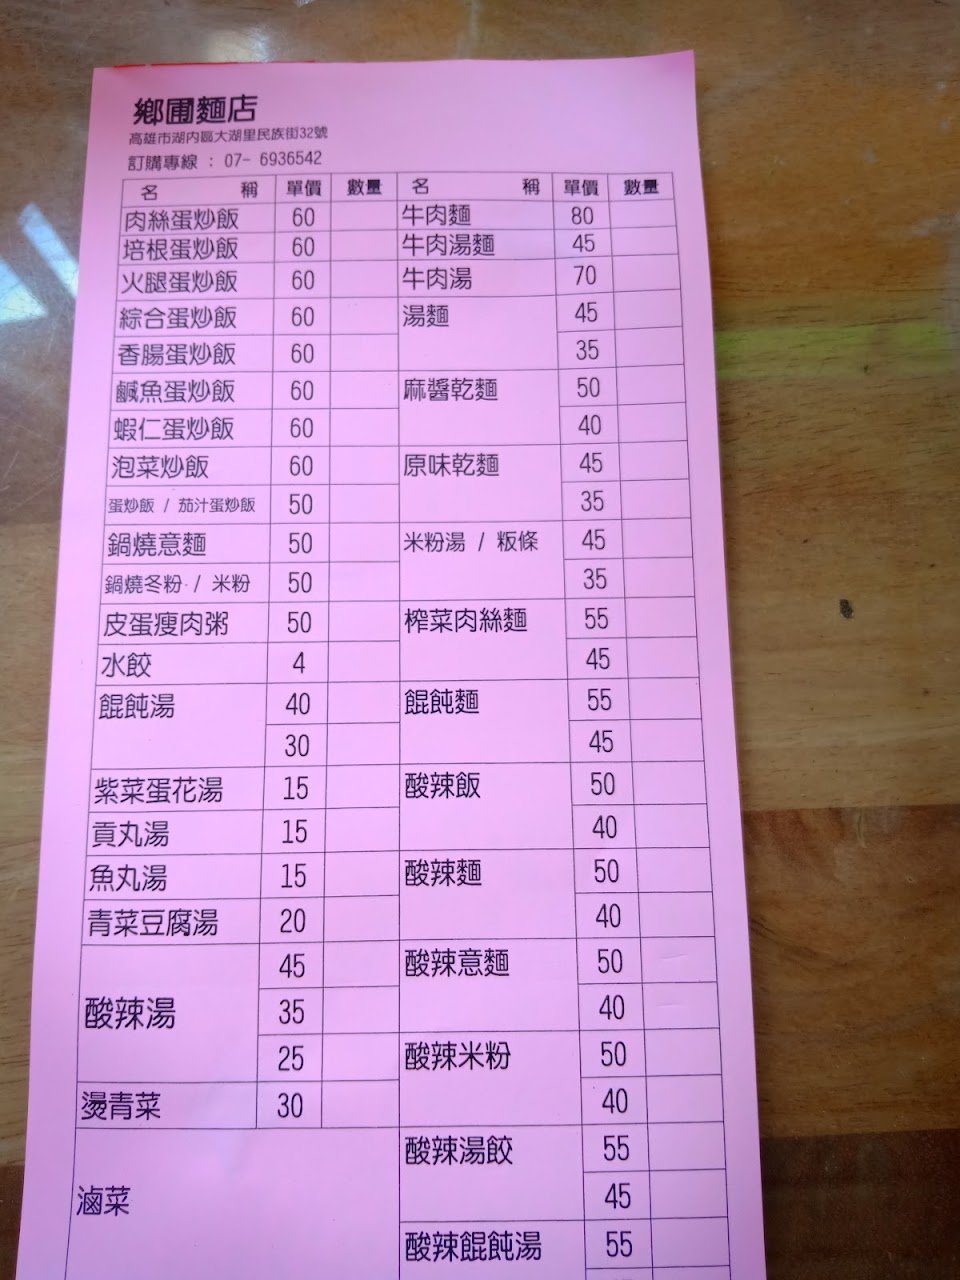 鄉圃麵店
高雄市湖內區大湖里民族街32號
訂購專線 : 07- 6936542
名 稱 單價 數量 名 稱 單價 數量
肉絲蛋炒飯 60 牛肉麵 80
培根蛋炒飯 60 牛肉湯麵 45
火腿蛋炒飯 60 牛肉湯 70
綜合蛋炒飯 60 湯麵 45
香腸蛋炒飯 60 35
鹹魚蛋炒飯 60 麻醬乾麵 50
蝦仁蛋炒飯 60 40
泡菜炒飯 60 原味乾麵 45
蛋炒飯 / 茄汁蛋炒飯 50 35
鍋燒意麵 50 米粉湯 / 粄條 45
鍋燒冬粉 / 米粉 50 35
皮蛋瘦肉粥 50 榨菜肉絲麵 55
水餃 4 45
餛飩湯 40 餛飩麵 55
30 45
紫菜蛋花湯 15 酸辣飯 50
貢丸湯 15 40
魚丸湯 15 酸辣麵 50
青菜豆腐湯 20 40
酸辣湯 45 酸辣意麵 50
35 40
25 酸辣米粉 50
燙青菜 30 40
滷菜 酸辣湯餃 55
45
酸辣餛飩湯 55